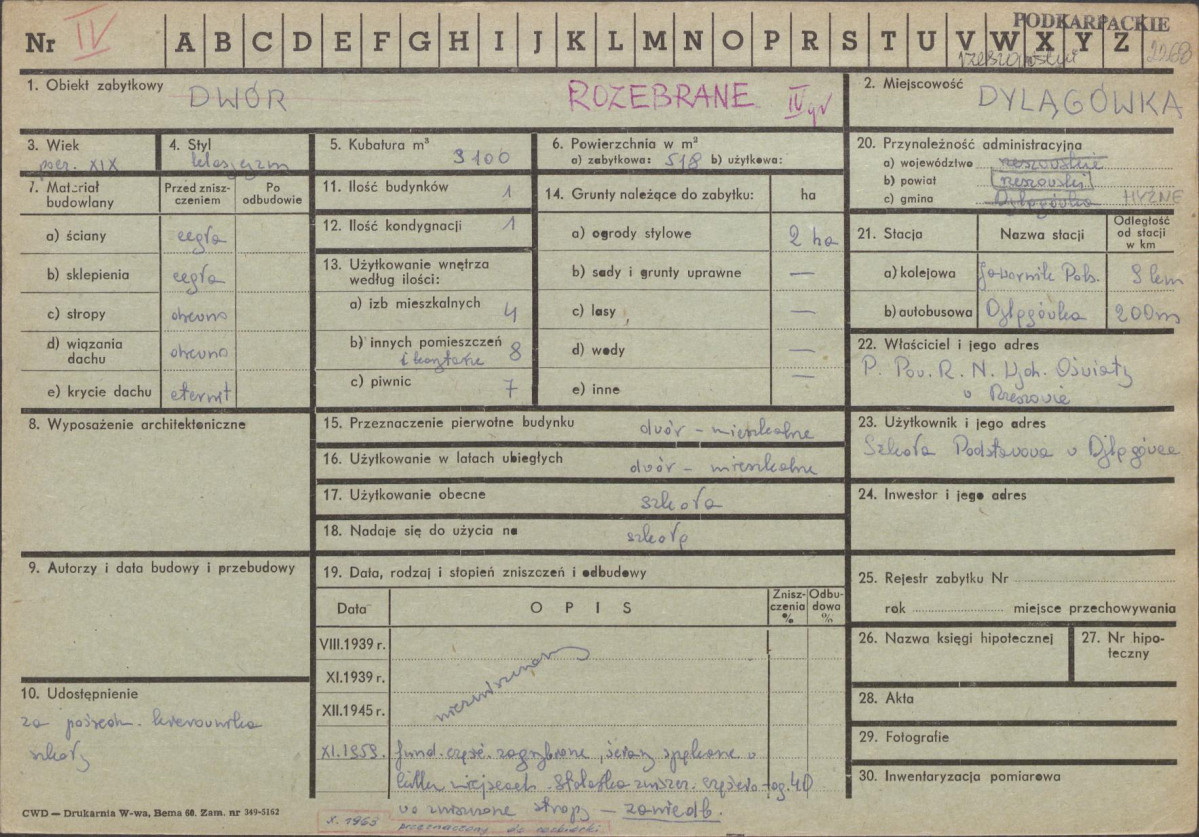 PODKARPACKIE
Nr IV A B C D E F G H I J K L M N O P R S T U V W X Y Z
1. Obiekt zabytkowy DWÓR ROZEBRANE IV gr
2. Miejscowość DYLĄGÓWKA
3. Wiek pocz. XIX
4. Styl klasycyzm
5. Kubatura m³ 3100
6. Powierzchnia w m²
a) zabytkowa: 518 b) użytkowa:
7. Materiał budowlany
Przed zniszczeniem
Po odbudowie
a) ściany cegła
b) sklepienia cegła
c) stropy drewno
d) wiązania dachu drewno
e) krycie dachu eternit
8. Wyposażenie architektoniczne
9. Autorzy i data budowy i przebudowy
10. Udostępnienie
za pośredn. kierownika
szkoły
11. Ilość budynków 1
12. Ilość kondygnacji 1
13. Użytkowanie wnętrza według ilości:
a) izb mieszkalnych 4
b) innych pomieszczeń 8
i korytarze
c) piwnic 7
14. Grunty należące do zabytku: ha
a) ogrody stylowe 2 ha
b) sady i grunty uprawne —
c) lasy —
d) wody —
e) inne —
15. Przeznaczenie pierwotne budynku dwór – mieszkalne
16. Użytkowanie w latach ubiegłych dwór – mieszkalne
17. Użytkowanie obecne szkoła
18. Nadaje się do użycia na szkołę
19. Data, rodzaj i stopień zniszczeń i odbudowy
Data OPIS Zniszczenia % Odbudowa %
VIII.1939 r.
XI.1939 r.
XII.1945 r.
niezniszczony
XI.1959. fund. częśc. zagrzybione, ściany spękane w
kilku miejscach. Stolarka zniszcz. częściowo
zniszczone stropy — zaniedb.
40
X. 1963 przeznaczony do rozbiórki
20. Przynależność administracyjna
a) województwo rzeszowskie
b) powiat rzeszowski
c) gmina Dylągówka HYŻNE
21. Stacja Nazwa stacji Odległość od stacji w km
a) kolejowa Jawornik Pols. 9 km
b) autobusowa Dylągówka 200m
22. Właściciel i jego adres
P. Pow. R. N. Wydz. Oświaty
w Rzeszowie
23. Użytkownik i jego adres
Szkoła Podstawowa w Dylągówce
24. Inwestor i jego adres
25. Rejestr zabytku Nr
rok miejsce przechowywania
26. Nazwa księgi hipotecznej
27. Nr hipoteczny
28. Akta
29. Fotografie
30. Inwentaryzacja pomiarowa
CWD — Drukarnia W-wa, Bema 60. Zam. nr 349-5162